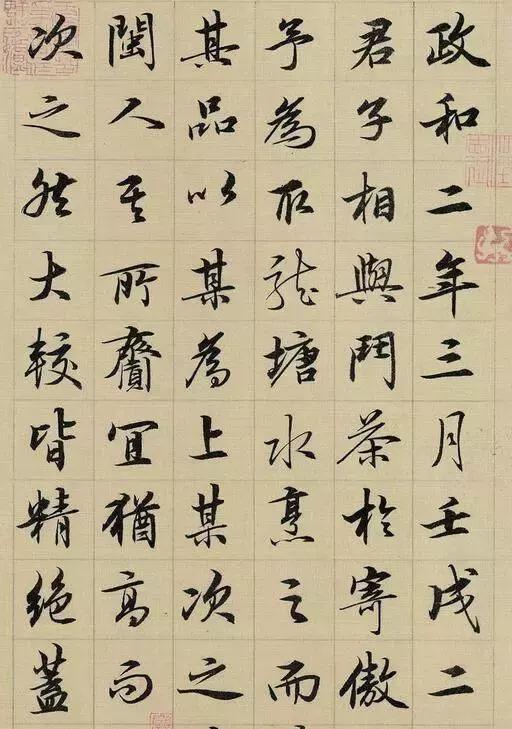 政和二年三月壬戌二
君子相與鬥茶於寄傲
予為取龍塘水烹之而
其品以某為上某次之
閩人其所齎宜猶高而
次之然大較皆精絕蓋